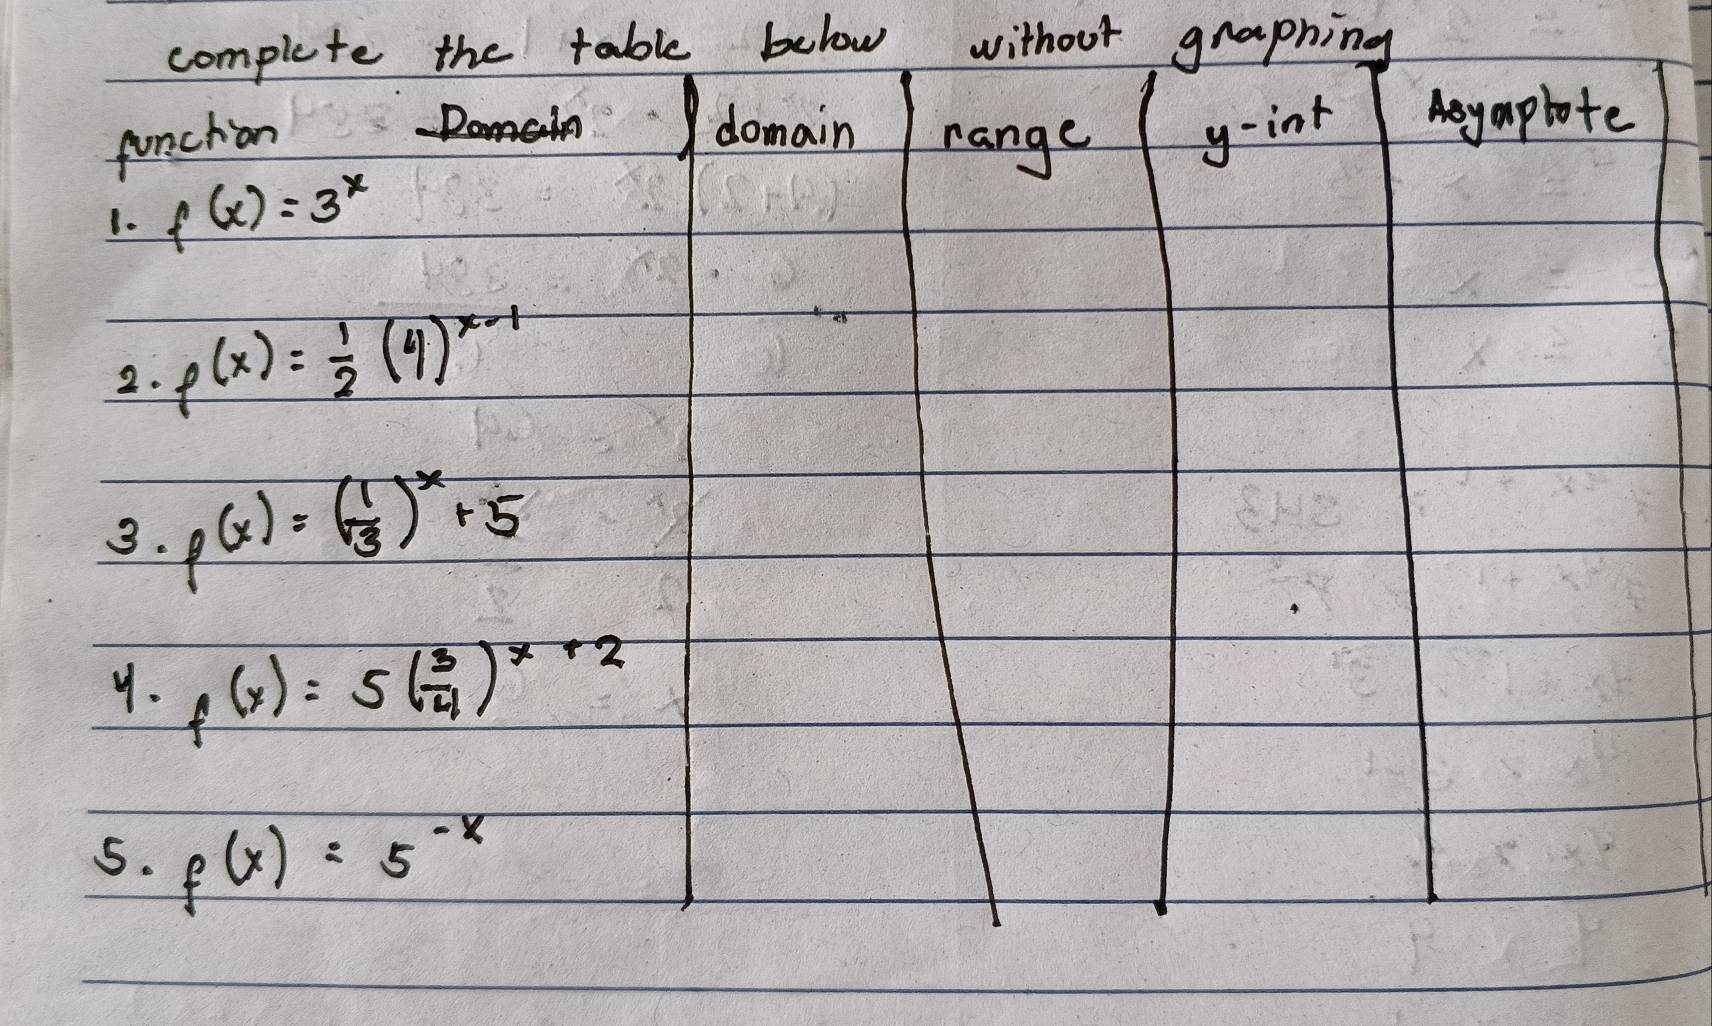 complete the table below without graphing
function Domain domain range y-int Asymptote
1. f(x) = 3^x
2. f(x) = 1/2 (4)^x-1
3. f(x) = (1/3)^x + 5
4. f(x) = 5 (3/4)^x + 2
5. f(x) = 5^-x